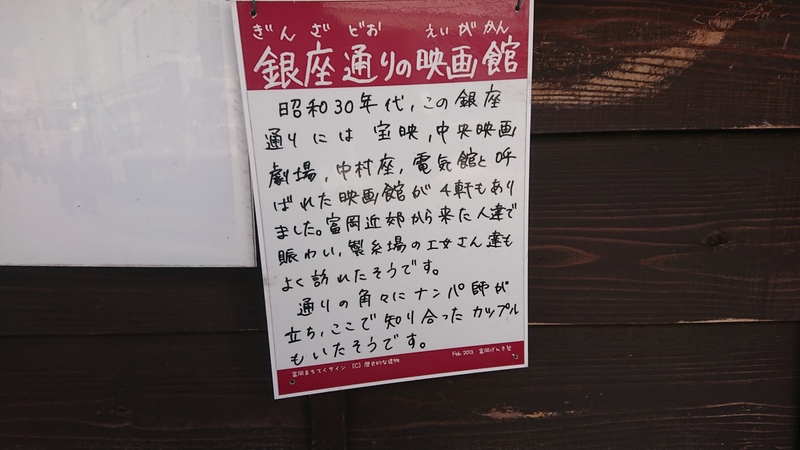 ぎんざどお えいがかん
銀座通りの映画館
昭和30年代,この銀座
通りには 宝映,中央映画
劇場,中村座,電気館と呼
ばれた映画館が4軒もあり
ました。富岡近郊から来た人達で
賑わい,製糸場の工女さん達も
よく訪れたそうです。
通りの角々にナンパ師が
立ち,ここで知り合ったカップル
もいたそうです。
富岡まちてくサイン [C] 歴史的な建物 Feb. 2013 富岡げんき塾